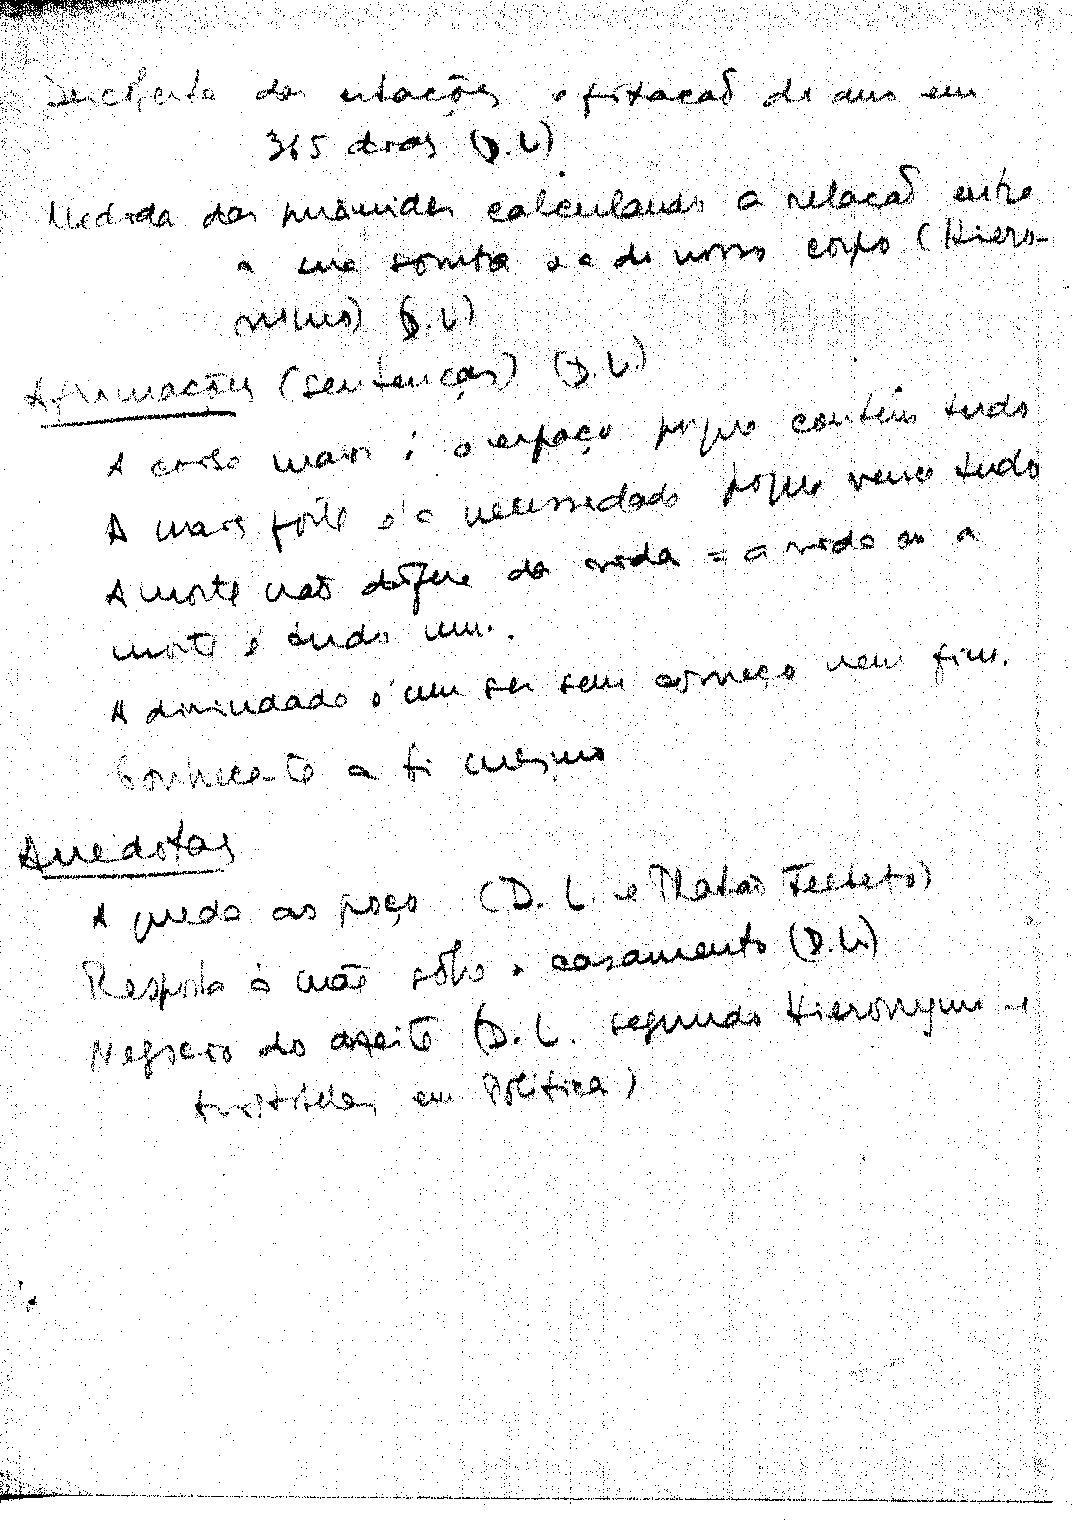 Descoberta das estações e fixacaõ do ano em
365 dias (D.L)
Medida das pirâmides calculando a relacaõ entre
a sua sombra e a do nosso corpo (Hiero-
nimus) (D.L)
Afirmações (sentenças) (D.L.)
A coisa maior é o espaço porque contém tudo
A mais forte é a necessidade porque vence tudo
A morte naõ difere da vida = a vida ou a
morte é tudo um.
A divindade é um ser sem começo nem fim.
Conhece-te a ti mesmo
Anedotas
A queda ao poço (D.L. e Plataõ Teeteto)
Resposta à mãe sôbre o casamento (D.L.)
Negocio do azeite (D.L. segundo Hieronymus e
Aristóteles em Política)